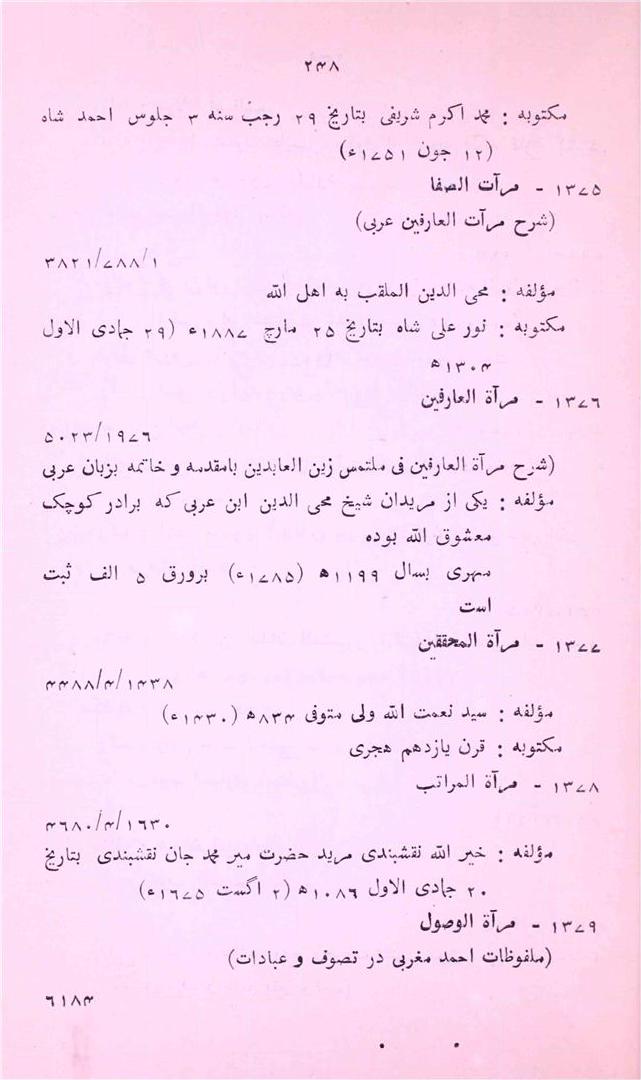 ۲۴۸
مکتوبه : محمد اکرم شریفی بتاریخ ۲۹ رجب سنه ۳ جلوس احمد شاه
(۱۲ جون ۱۷۵۱ء)
۱۳۷۵ - مرآت الصفا
(شرح مرآت العارفین عربی)
۳۸۲۱/۷۸۸/۱
مؤلفه : محی الدین الملقب به اهل الله
مکتوبه : نور علی شاه بتاریخ ۲۵ مارچ ۱۸۸۷ء (۲۹ جمادی الاول
۱۳۰۴ھ
۱۳۷۶ - مرآة العارفین
۵۰۲۳/۱۹۷۶
(شرح مرآة العارفین فی ملتمس زین العابدین بامقدمه و خاتمه بزبان عربی
مؤلفه : یکی از مریدان شیخ محی الدین ابن عربی که برادر کوچک
معشوق الله بوده
مهری بسال ۱۱۹۹ھ (۱۷۸۵ء) برورق ۵ الف ثبت
است
۱۳۷۷ - مرآة المحققین
۴۴۸۸/۴/۱۴۳۸
مؤلفه : سید نعمت الله ولی متوفی ۸۳۴ھ (۱۴۳۰ء)
مکتوبه : قرن یازدهم هجری
۱۳۷۸ - مرآة المراتب
۴۶۸۰/۴/۱۶۳۰
مؤلفه : خیر الله نقشبندی مرید حضرت میر محمد جان نقشبندی بتاریخ
۲۰ جمادی الاول ۱۰۸۶ھ (۲ اگست ۱۶۷۵ء)
۱۳۷۹ - مرآة الوصول
(ملفوظات احمد مغربی در تصوف و عبادات)
۶۱۸۴